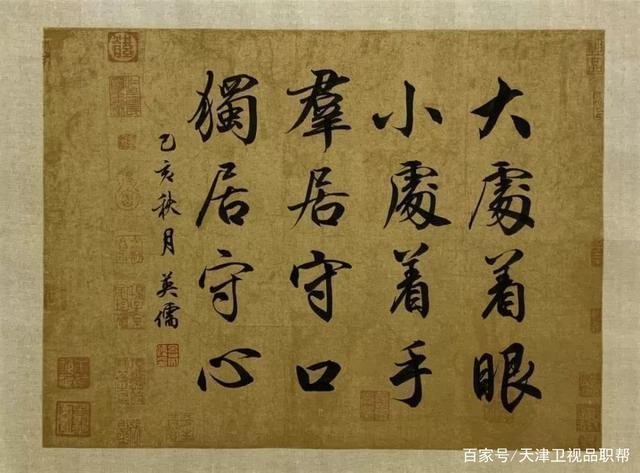 大處着眼
小處着手
羣居守口
獨居守心
乙亥秋月英儒
百家号/天津卫视品职帮